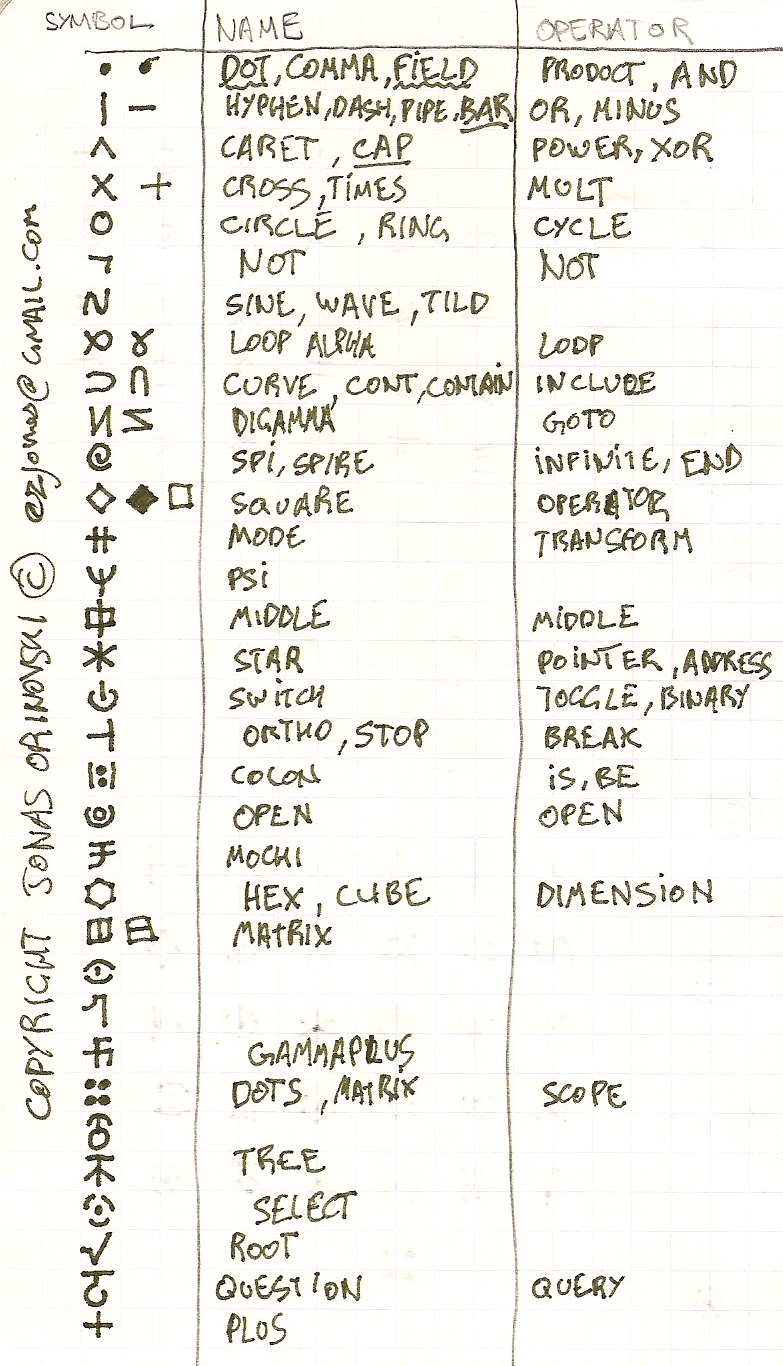 SYMBOL NAME OPERATOR
• DOT, COMMA, FIELD PRODUCT, AND
| — HYPHEN, DASH, PIPE, BAR OR, MINUS
^ CARET, CAP POWER, XOR
× + CROSS, TIMES MULT
O CIRCLE, RING CYCLE
¬ NOT NOT
SINE, WAVE, TILD
LOOP ALPHA LOOP
∩ CURVE, CONT, CONTAIN INCLUDE
DIGAMMA GOTO
@ SPI, SPIRE INFINITE, END
◇ ◆ □ SQUARE OPERATOR
# MODE TRANSFORM
Ψ PSI
MIDDLE MIDDLE
* STAR POINTER, ADDRESS
SWITCH TOGGLE, BINARY
⊥ ORTHO, STOP BREAK
COLON IS, BE
OPEN OPEN
MOCHI
HEX, CUBE DIMENSION
MATRIX
GAMMAPLUS
DOTS, MATRIX SCOPE
TREE
SELECT
√ ROOT
QUESTION QUERY
+ PLUS
COPYRIGHT JONAS ORINOVSKI © ezjonas@GMAIL.COM